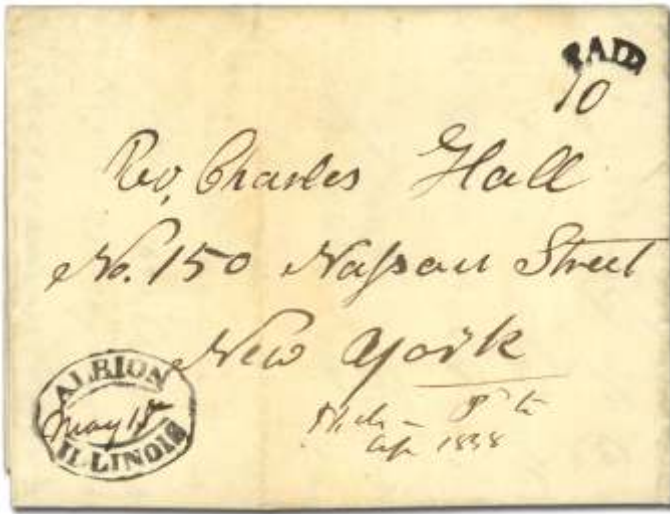 PAID
10
Rev, Charles Hall
No. 150 Nassau Street
New York
ALBION
May 1
ILLINOIS
1838